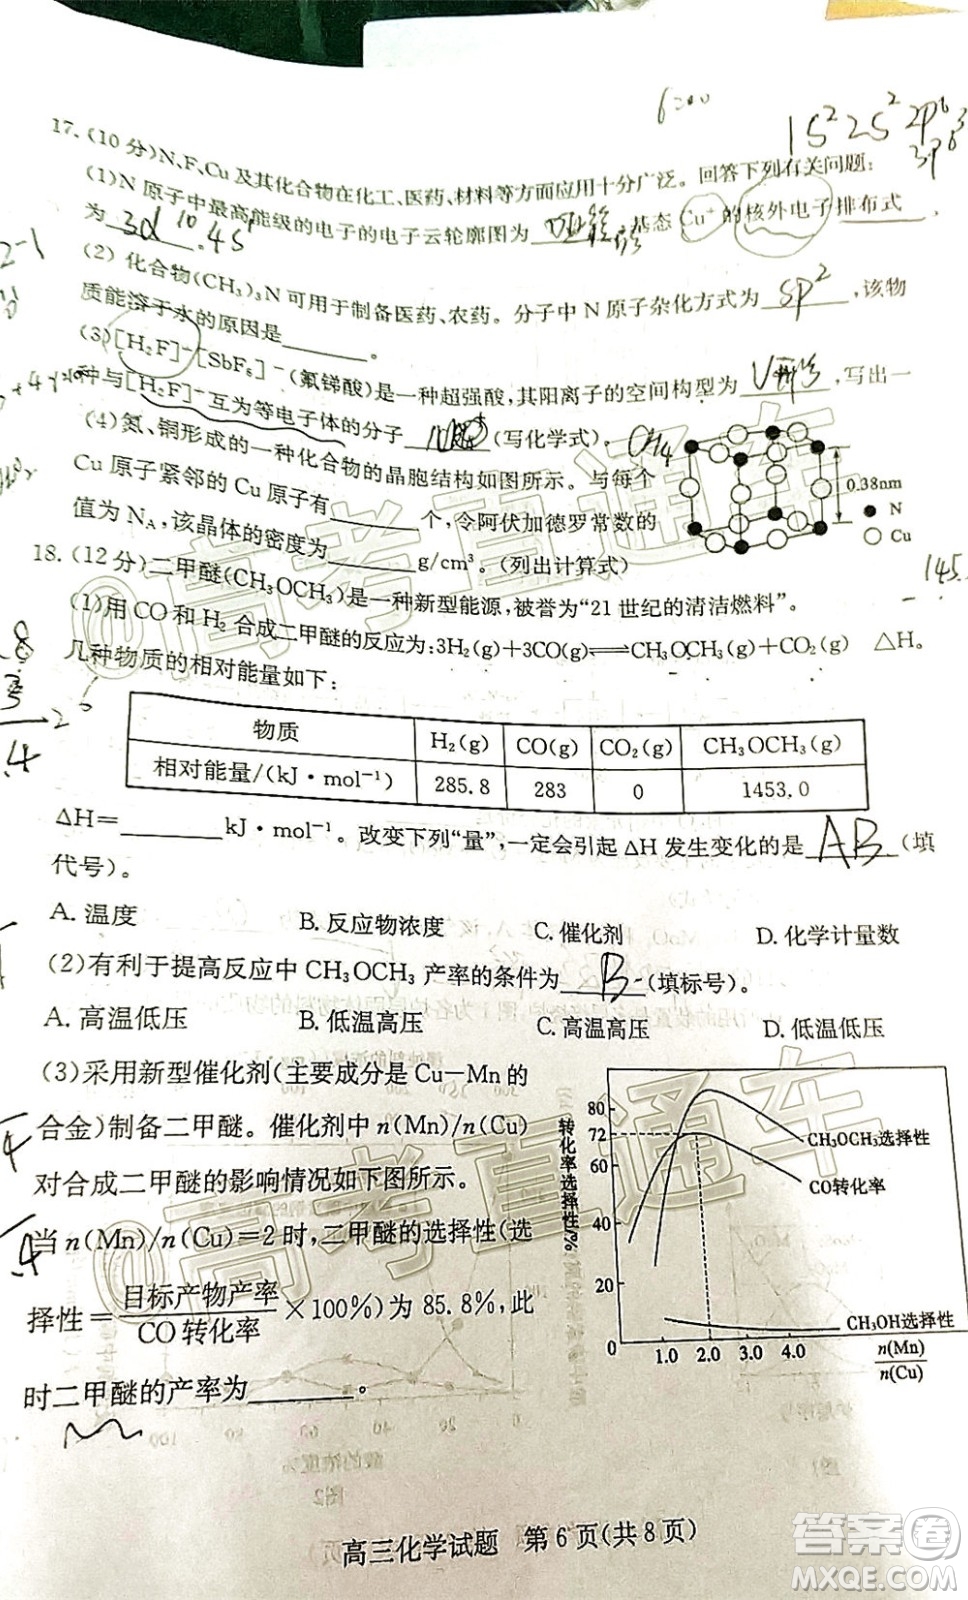 6200
1S²2S²2P⁶3
3p⁶
17.(10分)N、F、Cu及其化合物在化工、医药、材料等方面应用十分广泛。回答下列有关问题:
(1)N原子中最高能级的电子的电子云轮廓图为 哑铃 ,基态Cu⁺的核外电子排布式
为 3d¹⁰ 。
(2) 化合物(CH₃)₃N可用于制备医药、农药。分子中N原子杂化方式为 SP² ,该物
质能溶于水的原因是 。
(3)[H₂F]⁺[SbF₆]⁻(氟锑酸)是一种超强酸,其阳离子的空间构型为 V形 ,写出一
种与[H₂F]⁺互为等电子体的分子 (写化学式)。
(4)氮、铜形成的一种化合物的晶胞结构如图所示。与每个
Cu原子紧邻的Cu原子有 个,令阿伏加德罗常数的
值为N_A,该晶体的密度为 g/cm³。(列出计算式)
0.38nm
N
Cu
18.(12分)二甲醚(CH₃OCH₃)是一种新型能源,被誉为“21世纪的清洁燃料”。
(1)用CO和H₂合成二甲醚的反应为:3H₂(g)+3CO(g)⇌CH₃OCH₃(g)+CO₂(g) ΔH。
几种物质的相对能量如下:
物质 H₂(g) CO(g) CO₂(g) CH₃OCH₃(g)
相对能量/(kJ·mol⁻¹) 285.8 283 0 1453.0
ΔH= kJ·mol⁻¹。改变下列“量”,一定会引起ΔH发生变化的是 AB (填
代号)。
A.温度 B.反应物浓度 C.催化剂 D.化学计量数
(2)有利于提高反应中CH₃OCH₃产率的条件为 B (填标号)。
A.高温低压 B.低温高压 C.高温高压 D.低温低压
(3)采用新型催化剂(主要成分是Cu—Mn的
合金)制备二甲醚。催化剂中n(Mn)/n(Cu)
对合成二甲醚的影响情况如下图所示。
当n(Mn)/n(Cu)=2时,二甲醚的选择性(选
择性=目标产物产率/CO转化率×100%)为85.8%,此
时二甲醚的产率为 。
转化率选择性/%
80
72
60
40
20
0
1.0 2.0 3.0 4.0
n(Mn)/n(Cu)
CH₃OCH₃选择性
CO转化率
CH₃OH选择性
高三化学试题 第6页(共8页)
@高考直通车
@高考直通车
答案圈
MXQE.COM